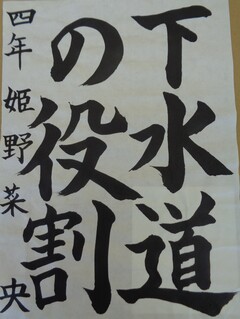 下水道
の役割
四年 姫野菜央